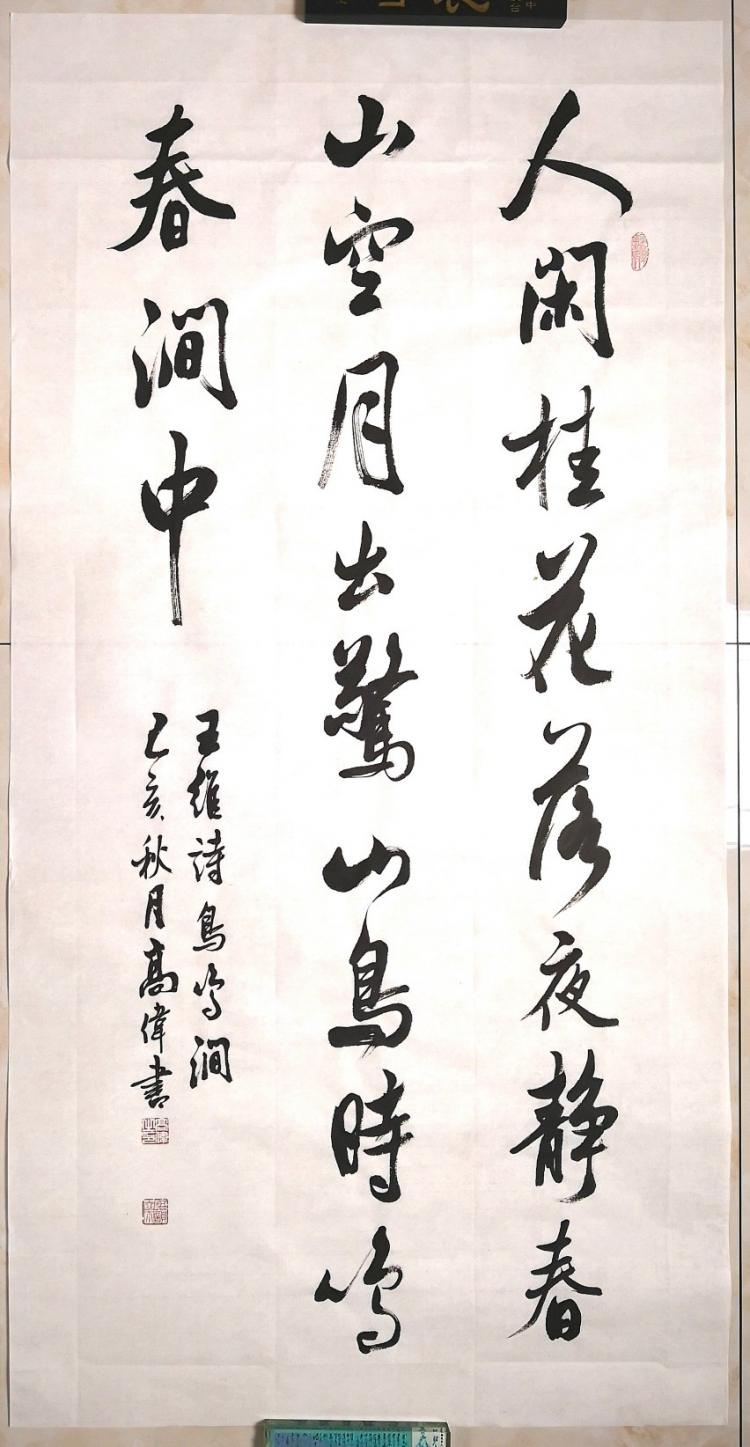 人閑桂花落夜静春
山空月出驚山鳥時鳴
春澗中
王維詩鳥鳴澗
己亥秋月高偉書